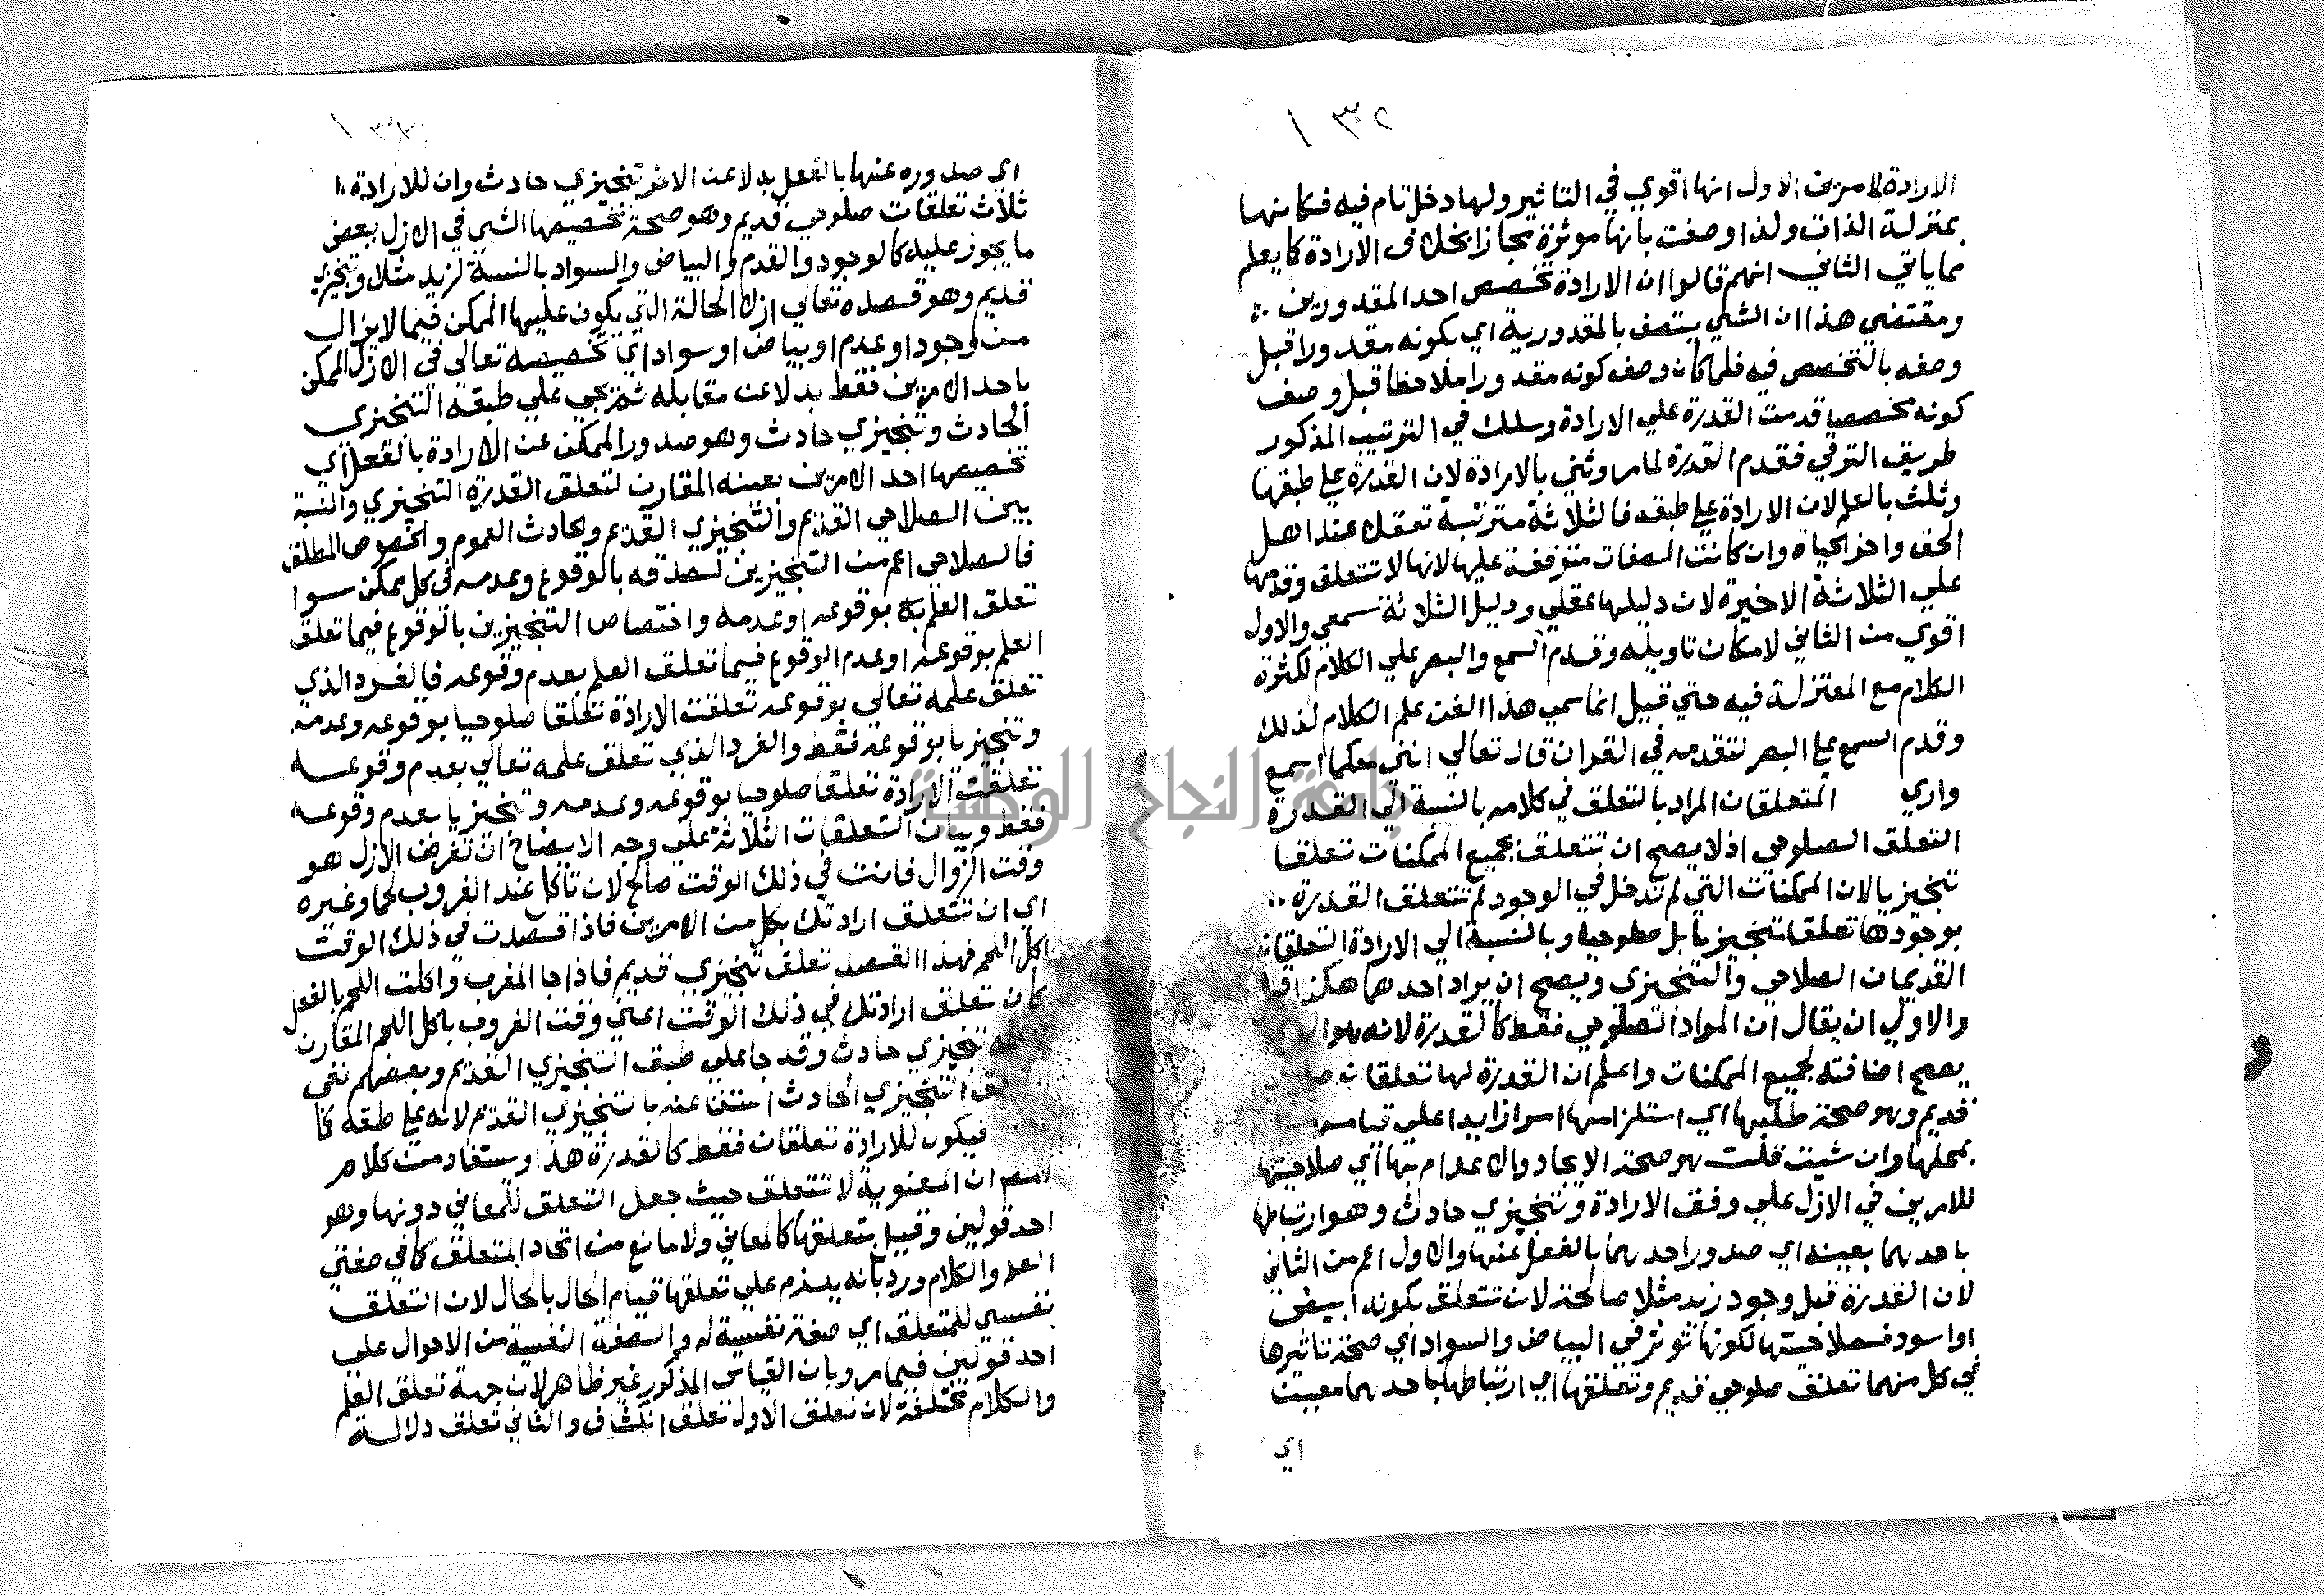 ١٣٢
الارادة لامرين الاول انها اقوي في التاثير ولها دخل تام فيه فكانها
بمنزلة الذات ولذا وصفت بانها موثرة مجازا بخلاف الارادة كما يعلم
مما ياتي الثاني انهم قالوا ان الارادة تخصص احد المقدورين
ومقتضي هذا ان الشي يتصف بالمقدورية اي بكونه مقدورا قبل
وصفه بالتخصص فيه فلما كان وصف كونه مقدورا ملاحظا قبل وصف
كونه مخصصا قدمت القدرة علي الارادة وسلك في الترتيب المذكور
طريق الترقي فقدم القدرة لما مر وثني بالارادة لان القدرة علي طبقها
وثلث بالعلم لان الارادة علي طبقه فالثلاثة مترتبة تعقلا عند اهل
الحق واخر الحياة وان كانت الصفات متوقفة عليها لانها لا تتعلق وقدمها
علي الثلاثة الاخيرة لان دليلها عقلي ودليل الثلاثة سمعي والاول
اقوي من الثاني لامكان تاويله وقدم السمع والبصر علي الكلام لكثرة
الكلام مع المعتزلة فيه حتي قيل انما سمي هذا الفن علم الكلام لذلك
وقدم السمع علي البصر لتقدمه في القران قال تعالي انني معكما اسمع
واري المتعلقان المراد بالتعلق في كلامه بالنسبة الي القدرة
التعلق الصلوحي اذ لا يصح ان تتعلق بجميع الممكنات تعلقا
تنجيزيا لان الممكنات التي لم تدخل في الوجود لم تتعلق القدرة
بوجودها تعلقا تنجيزيا بل صلوحيا وبالنسبة الي الارادة التعلقان
القديمان الصلاحي والتنجيزي ويصح ان يراد احدهما هكذا
والاولي ان يقال ان المراد الصلوحي فقط كالقدرة لانه هو
يصح اضافته لجميع الممكنات واعلم ان القدرة لها تعلقان
قديم وهو صحة طلبها اي استلزامها امرا زايدا علي
بمحلها وان شيت قلت هو صحة الايجاد والاعدام بها اي صلاحيتها
للامرين في الازل علي وفق الارادة وتنجيزي حادث وهو ارتباطها
باحدهما بعينه اي صدور احدهما بالفعل عنها والاول اعم من الثاني
لان القدرة قبل وجود زيد مثلا صالحة لان تتعلق بكونه ابيض
او اسود فصلاحيتها لكونها تؤثر في البياض والسواد اي صحة تاثيرها
في كل منهما تعلق صلوحي قديم وتعلقها اي ارتباطها باحدهما معينا
اي
١٣٣
اي صدوره عنها بالفعل بدلا عن الاخر تنجيزي حادث وان للارادة
ثلاث تعلقات صلوحي قديم وهو صحة تخصيصها الشي في الازل ببعض
ما يجوز عليه كالوجود والقدم والبياض والسواد بالنسبة لزيد مثلا وتنجيزي
قديم وهو قصده تعالي ازلا الحالة التي يكون عليها الممكن فيما لا يزال
من وجود او عدم او بياض او سواد اي تخصيصه تعالي في الازل الممكن
باحد الامرين فقط بدلا عن مقابله ثم يجي علي طبقه التنجيزي
الحادث وتنجيزي حادث وهو صدور الممكن عن الارادة بالفعل اي
تخصيصها احد الامرين بعينه المقارن لتعلق القدرة التنجيزي والنسبة
بين الصلاحي القديم والتنجيزي القديم والحادث العموم والخصوص المطلق
فالصلاحي اعم من التنجيزين لصدقه بالوقوع وعدمه في كل ممكن سوا
تعلق العلم بوقوعه او عدمه واختصاص التنجيزين بالوقوع فيما تعلق
العلم بوقوعه او عدم الوقوع فيما تعلق العلم بعدم وقوعه فالفرد الذي
تعلق علمه تعالي بوقوعه تعلقت الارادة تعلقا صلوحيا بوقوعه وعدمه
وتنجيزيا بوقوعه فقط والفرد الذي تعلق علمه تعالي بعدم وقوعه
تعلقت الارادة تعلقا صلوحيا بوقوعه وعدمه وتنجيزيا بعدم وقوعه
فقط وبيان التعلقات الثلاثة علي وجه الايضاح ان تفرض الازل هو
وقت الزوال فانت في ذلك الوقت صالح لان تاكل عند الغروب لحما وغيره
اي ان تتعلق ارادتك بكل من الامرين فاذا قصدت في ذلك الوقت
اكل اللحم فهذا القصد تعلق تنجيزي قديم فاذا جا المغرب واكلت اللحم بالفعل
كان تعلق ارادتك في ذلك الوقت اعني وقت الغروب باكل اللحم المقارن
تنجيزي حادث وقد جا علي طبق التنجيزي القديم وبعضهم نفي
التنجيزي الحادث استغنا عنه بالتنجيزي القديم لانه علي طبقه كما
فيكون للارادة تعلقان فقط كالقدرة هذا ويستفاد من كلام
المص ان المعنوية لا تتعلق حيث جعل التعلق للمعاني دونها وهو
احد قولين وقيل بتعلقها كالمعاني ولا مانع من اتحاد المتعلق كما في صفتي
العلم والكلام ورد بانه يلزم علي تعلقها قيام الحال بالحال لان التعلق
نفسي للمتعلق اي صفة نفسية له والصفة النفسية من الاحوال علي
احد قولين فيما مر وبان القياس المذكور غير ظاهر لان جهة تعلق العلم
والكلام مختلفة لان تعلق الاول تعلق انكشاف والثاني تعلق دلالة
جامعة النجاح الوطنية